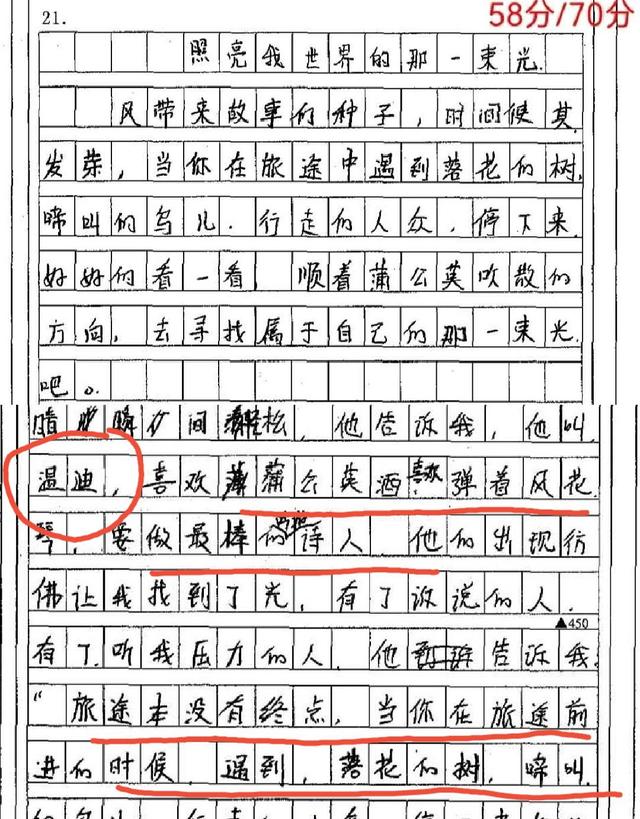 21.
58分/70分
照亮我世界的那一束光
风带来故事的种子，时间候其
发芽，当你在旅途中遇到落花的树，
啼叫的鸟儿.行走的人众，停下来
好好的看一看 顺着蒲公英吹散的
方向，去寻找属于自己的那一束光
吧。
间 松，他告诉我，他叫
温迪，喜欢蒲公英酒喜欢弹着风花
琴，要做最棒的 诗人 他的出现仿
佛让我找到了光，有了诉说的人.
▲450
有了听我压力的人.他 告诉我：
“旅途本没有终点，当你在旅途前
进的时候 遇到，落花的树，啼叫.